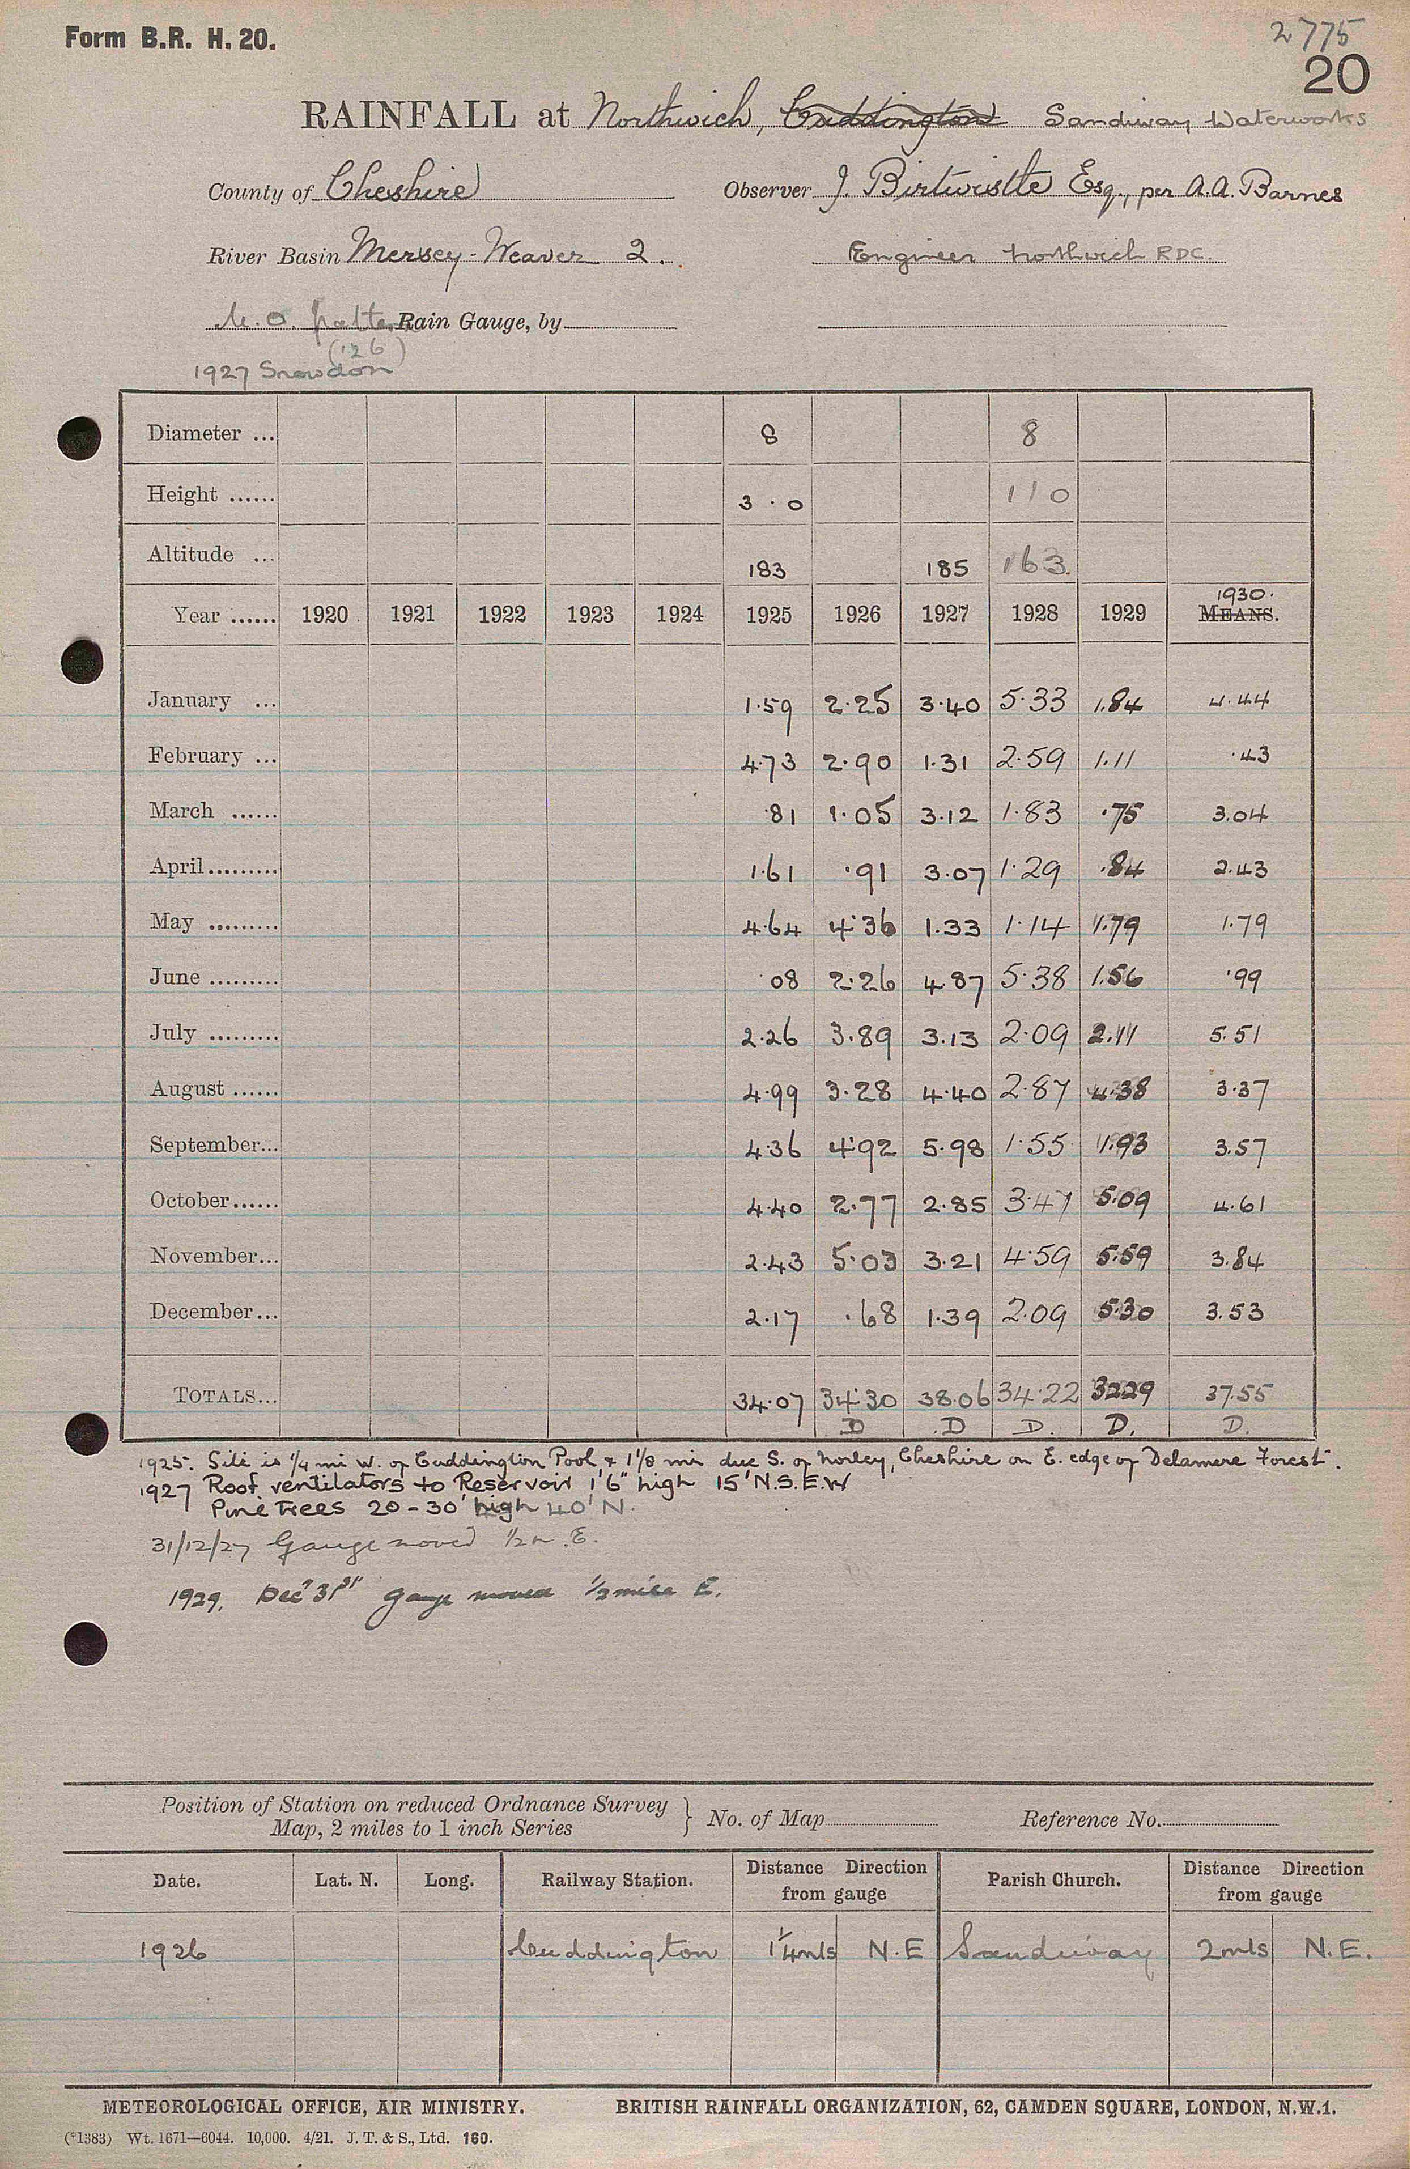 Form B.R. H. 20.
2775
20
RAINFALL at Northwich, Cuddington Sandiway Waterworks
County of Cheshire Observer J. Birtwistle Esq., per A.A. Barnes
River Basin Mersey-Weaver 2. Engineer Northwich RDC.
M.O. pattern Rain Gauge, by
('26)
1927 Snowdon
Diameter ... 8 8
Height ...... 3 · 0 1 10
Altitude ... 183 185 163.
1930.
Year ...... 1920 1921 1922 1923 1924 1925 1926 1927 1928 1929 MEANS.
January ... 1·59 2·25 3·40 5·33 1.84 4.44
February ... 4·73 2·90 1·31 2·59 1.11 ·43
March ...... ·81 1·05 3·12 1·83 ·75 3.04
April......... 1·61 ·91 3·07 1·29 ·84 2.43
May ......... 4·64 4·36 1.33 1·14 1.79 1.79
June ......... ·08 2·26 4·87 5·38 1.56 ·99
July ......... 2·26 3·89 3·13 2·09 2.11 5.51
August ...... 4·99 3·28 4·40 2·87 4.38 3·37
September... 4·36 4·92 5·98 1·55 1.93 3.57
October...... 4·40 2·77 2·85 3·47 5.09 4.61
November... 2·43 5·03 3·21 4·59 5.59 3.84
December... 2·17 ·68 1·39 2·09 5.30 3.53
TOTALS... 34·07 34·30 38·06 34·22 32.29 37.55
D D D. D. D.
1925. Site is 1/4 mi W. of Cuddington Pool, & 1 1/8 mi due S. of Norley, Cheshire on E. edge of Delamere Forest.
1927 Roof ventilators to Reservoir 1'6" high 15' N.S.E.W
Pine Trees 20-30' high 40' N.
31/12/27 Gauge moved 1/2 m. E.
1929. Dec 31st gauge moved 1/2 mile E.
Position of Station on reduced Ordnance Survey Map, 2 miles to 1 inch Series } No. of Map Reference No.
Date. Lat. N. Long. Railway Station. Distance Direction from gauge Parish Church. Distance Direction from gauge
1926 Cuddington 1 1/4 mls N.E Sandiway 2 mls N.E.
METEOROLOGICAL OFFICE, AIR MINISTRY. BRITISH RAINFALL ORGANIZATION, 62, CAMDEN SQUARE, LONDON, N.W.1.
(*1383) Wt. 1671—6044. 10,000. 4/21. J. T. & S., Ltd. 160.